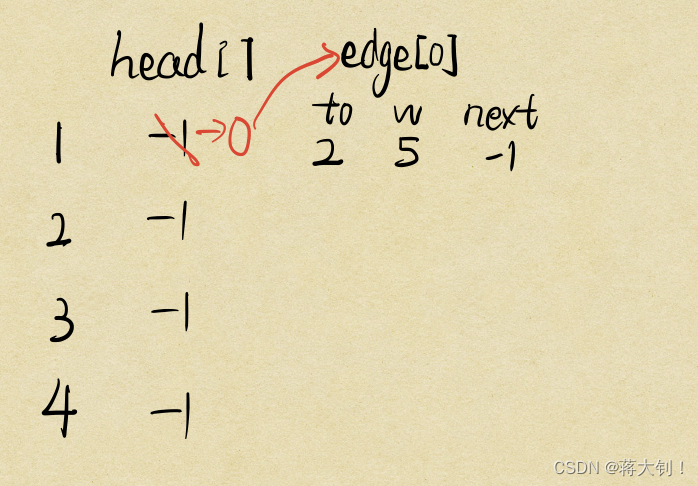 head[] edge[0]
to w next
1 -1 → 0 2 5 -1
2 -1
3 -1
4 -1
CSDN @蒋大钊！